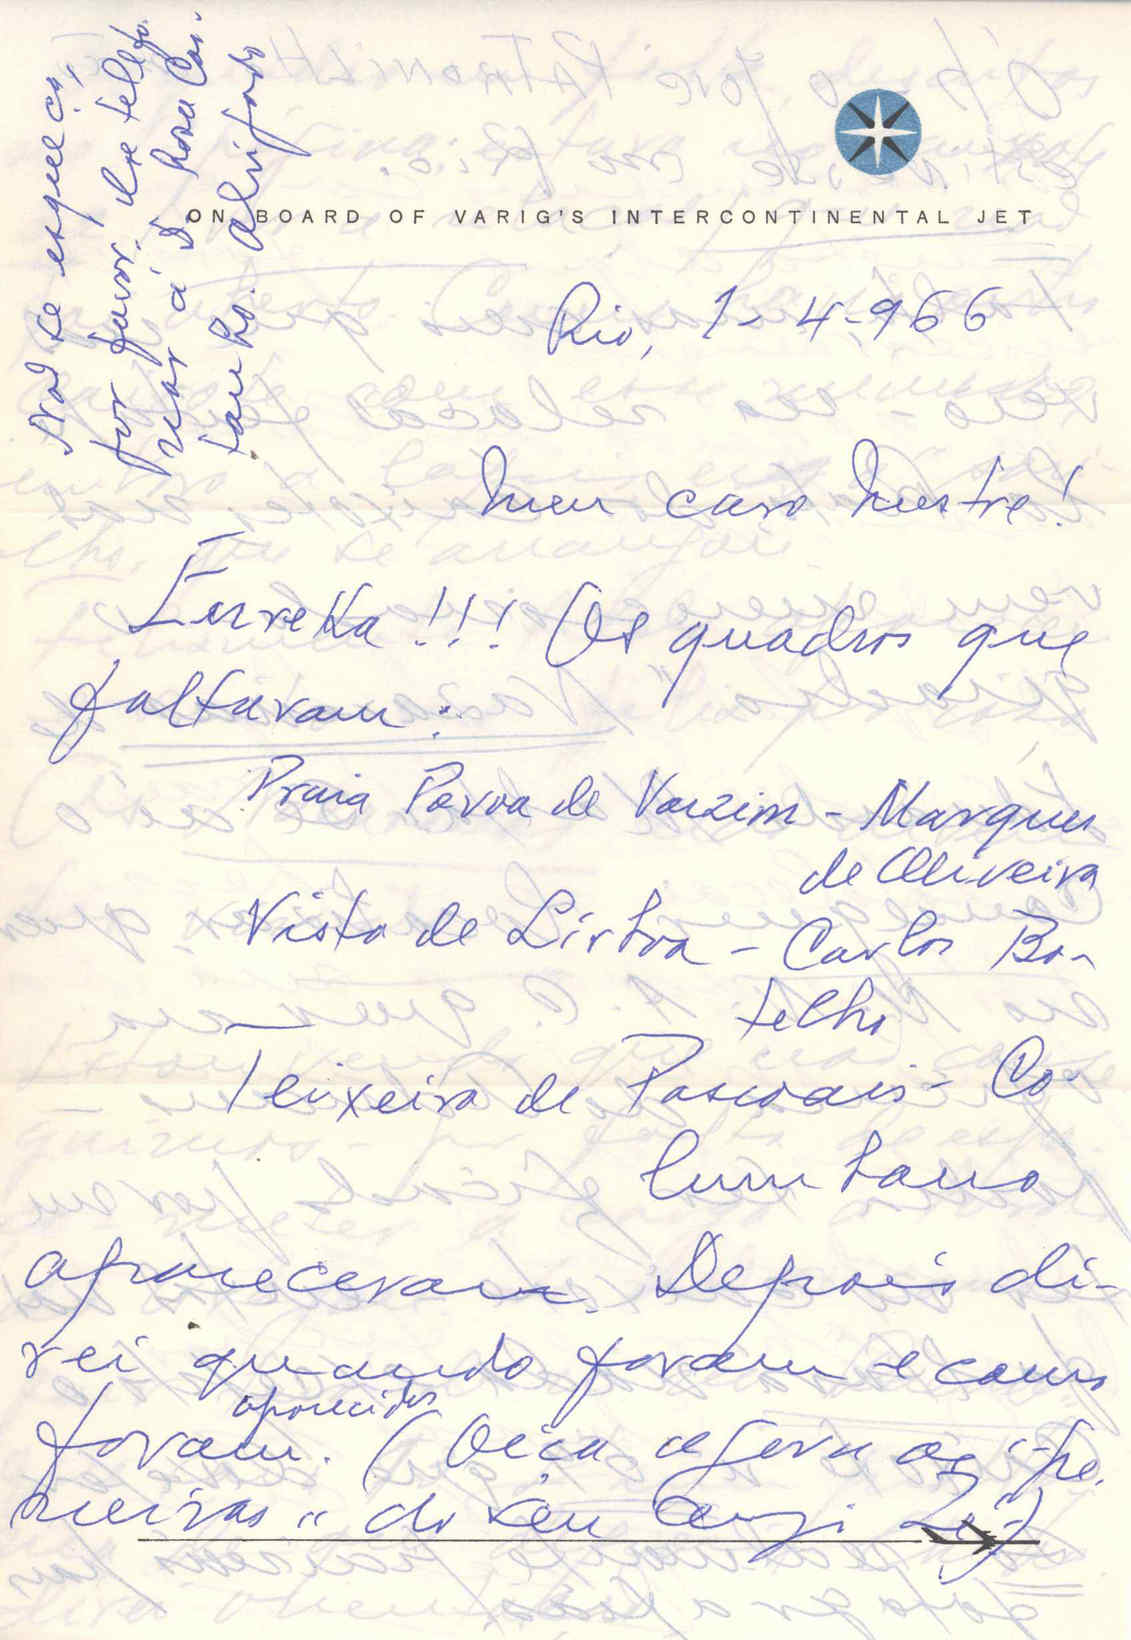 Não se esqueça,
por favor, de telefo-
nar à D. Rosa Cas-
tanho. Obrigado
ON BOARD OF VARIG'S INTERCONTINENTAL JET
Rio, 1-4-966
Meu caro Mestre!
Eurreka!!! Os quadros que
faltavam:
Praia Povoa de Varzim - Marques
de Oliveira
Vista de Lisboa - Carlos Bo-
telho
Teixeira de Pascoais - Co-
lumbano
apareceram. Depois di-
rei quando foram e como
foram aparecidos. (Oiça agora as
do seu